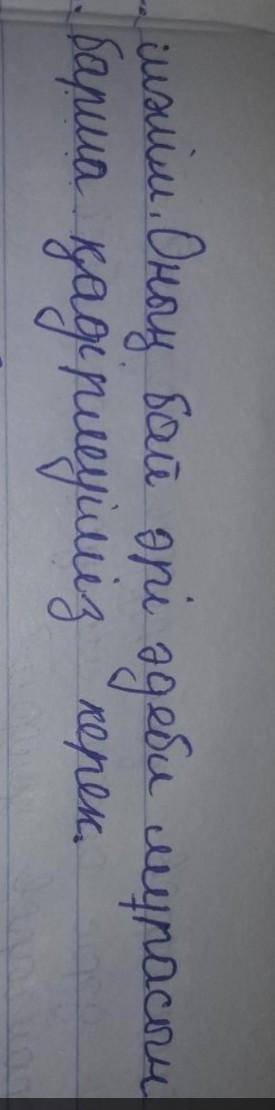 мәлім. Оның бай әрі әдеби мұрасын
барша қадірлеуіміз керек.